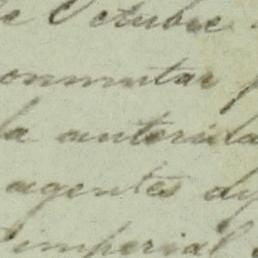 de Octubre
onmutar
la autorida
agentes dy
imperial